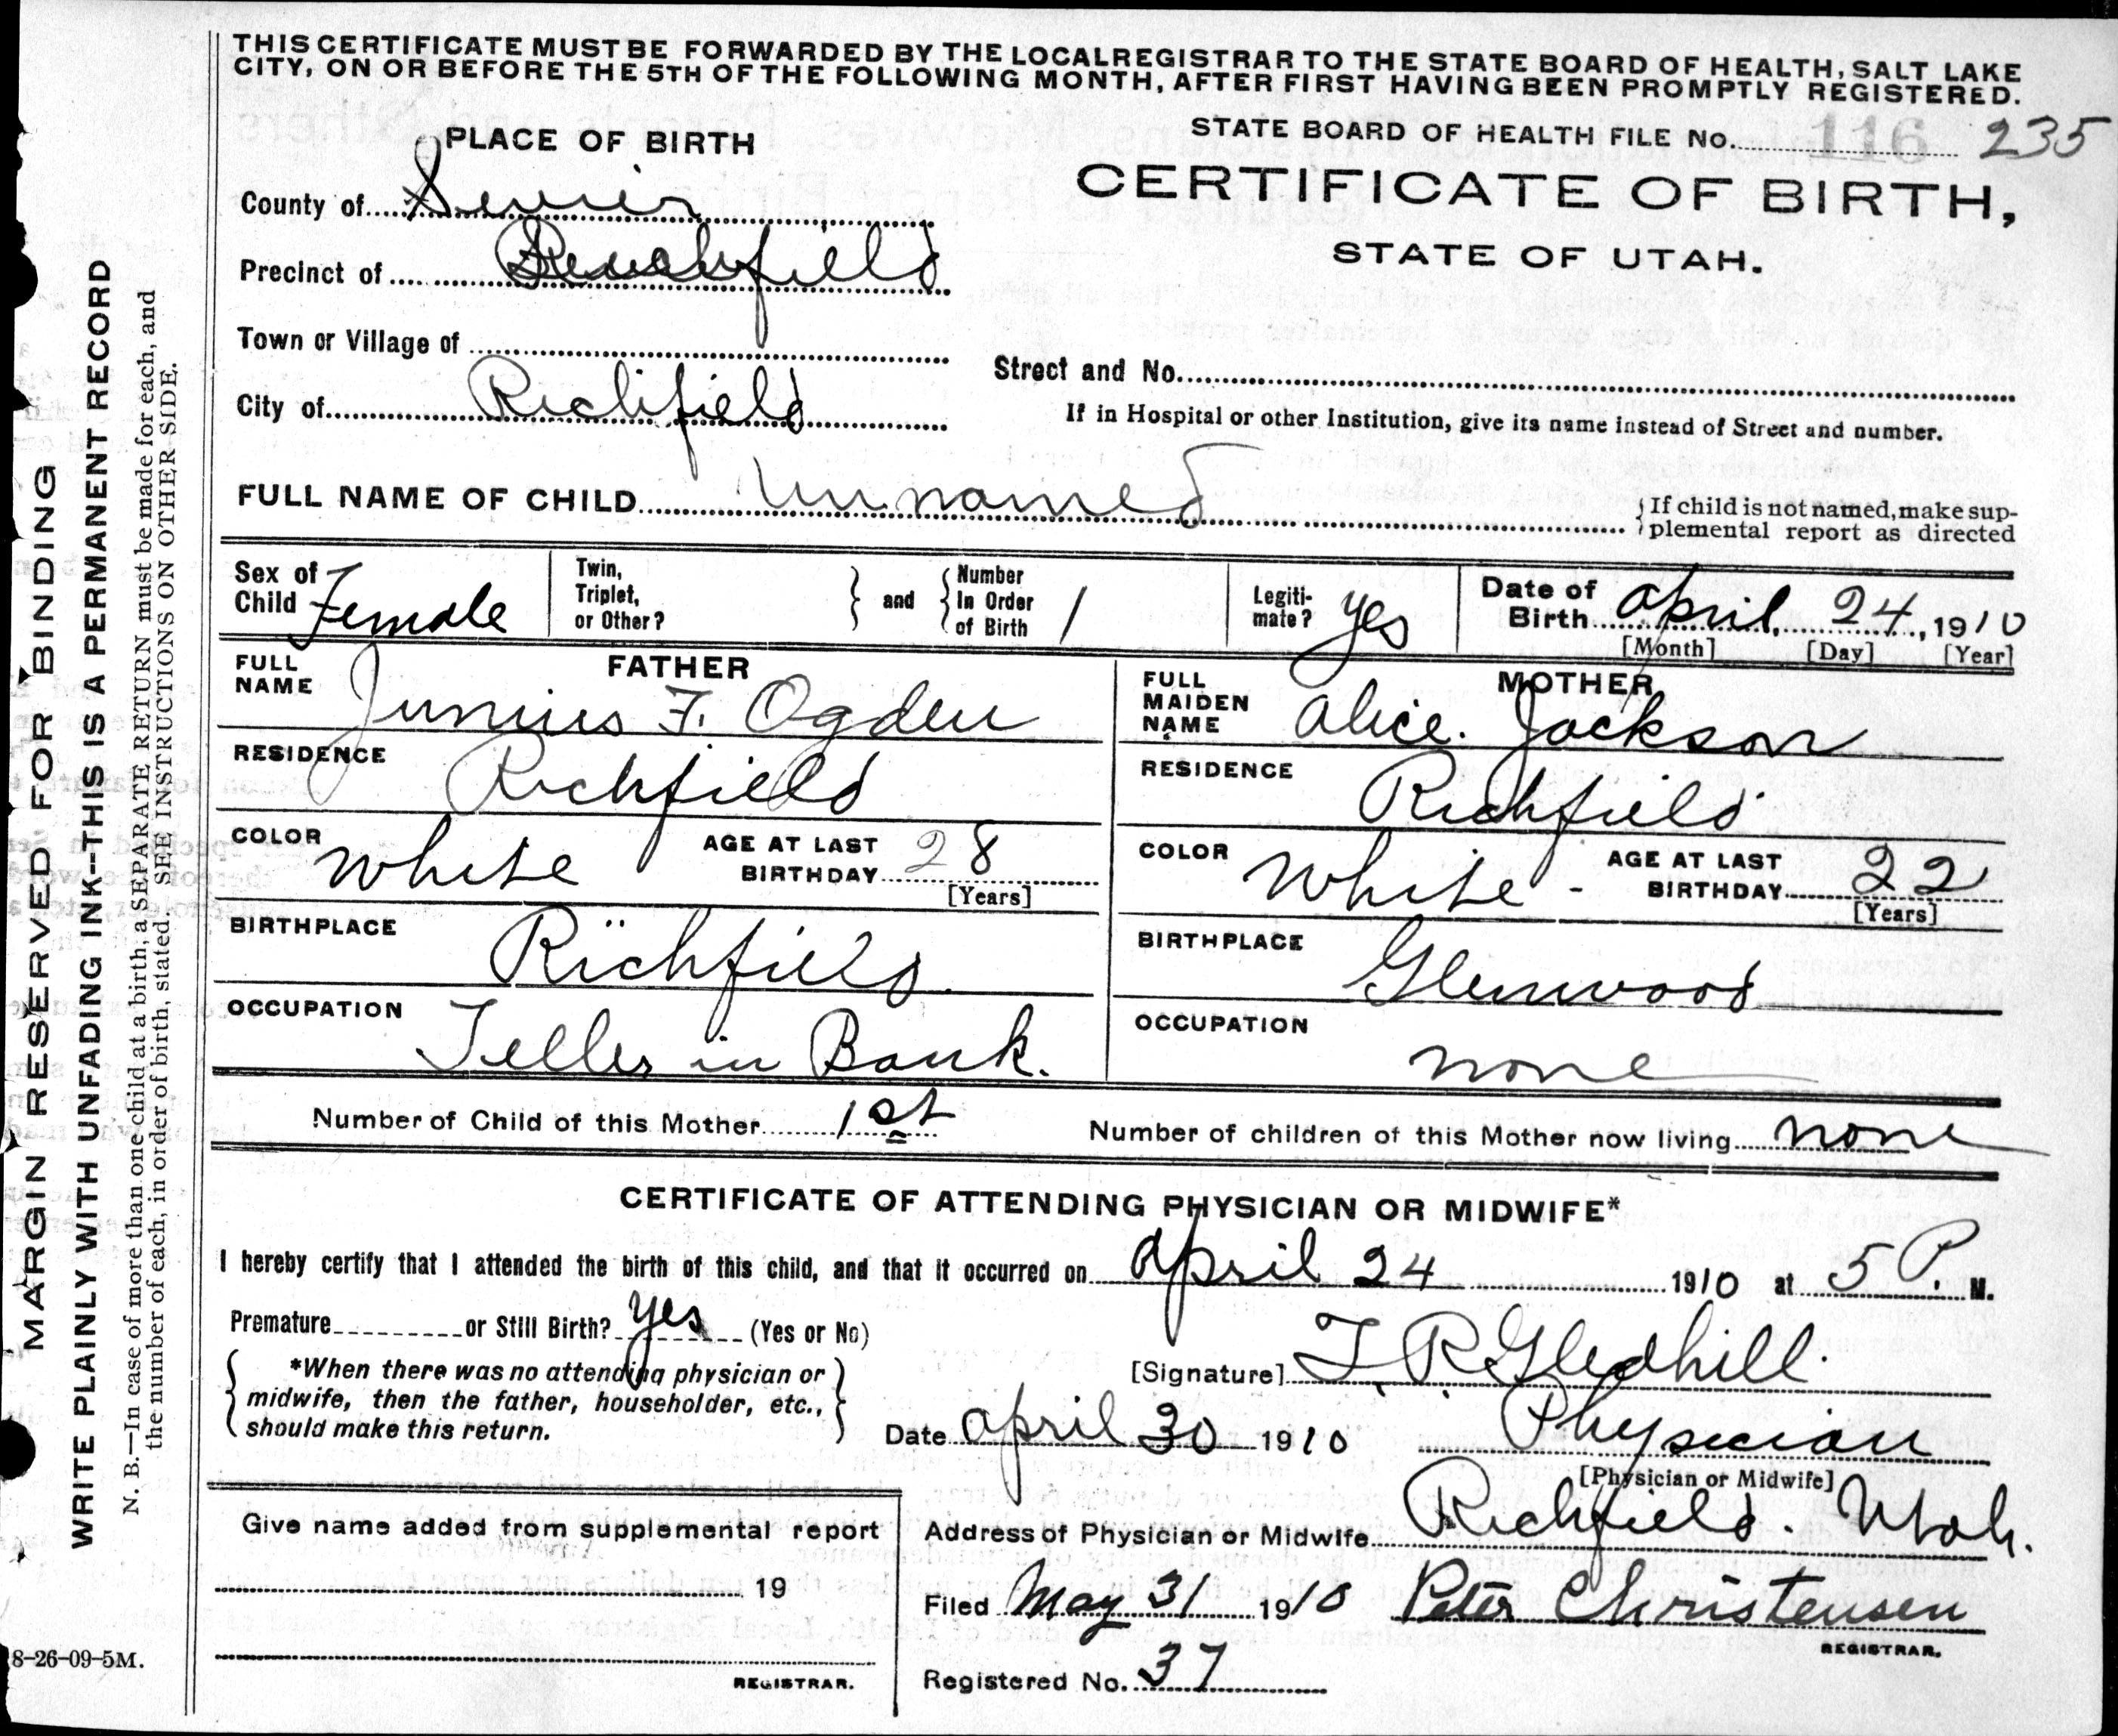 THIS CERTIFICATE MUST BE FORWARDED BY THE LOCAL REGISTRAR TO THE STATE BOARD OF HEALTH, SALT LAKE
CITY, ON OR BEFORE THE 5TH OF THE FOLLOWING MONTH, AFTER FIRST HAVING BEEN PROMPTLY REGISTERED.
PLACE OF BIRTH
STATE BOARD OF HEALTH FILE No. 116 235
County of Sevier
CERTIFICATE OF BIRTH,
STATE OF UTAH.
Precinct of Richfield
Town or Village of
Street and No.
City of Richfield
If in Hospital or other Institution, give its name instead of Street and number.
FULL NAME OF CHILD Unnamed
If child is not named, make sup-
plemental report as directed
Sex of
Child Female
Twin,
Triplet,
or Other?
and
Number
In Order
of Birth 1
Legiti-
mate? yes
Date of
Birth April 24, 1910
[Month] [Day] [Year]
FATHER
FULL
NAME Junius F. Ogden
MOTHER
FULL
MAIDEN
NAME Alice. Jackson
RESIDENCE Richfield
RESIDENCE Richfield
COLOR White
AGE AT LAST
BIRTHDAY 28
[Years]
COLOR White -
AGE AT LAST
BIRTHDAY 22
[Years]
BIRTHPLACE Richfield.
BIRTHPLACE Glenwood
OCCUPATION Teller in Bank.
OCCUPATION none
Number of Child of this Mother 1st
Number of children of this Mother now living none
CERTIFICATE OF ATTENDING PHYSICIAN OR MIDWIFE*
I hereby certify that I attended the birth of this child, and that it occurred on April 24 1910 at 5 P. M.
Premature or Still Birth? yes (Yes or No)
*When there was no attending physician or
midwife, then the father, householder, etc.,
should make this return.
[Signature] T. R. Gledhill.
Date April 30 1910 Physician
[Physician or Midwife]
Address of Physician or Midwife Richfield. Utah.
Give name added from supplemental report
19
REGISTRAR.
Filed May 31 1910 Peter Christensen
REGISTRAR.
Registered No. 37
8-26-09-5M.
MARGIN RESERVED FOR BINDING
WRITE PLAINLY WITH UNFADING INK--THIS IS A PERMANENT RECORD
N. B.—In case of more than one child at a birth, a SEPARATE RETURN must be made for each, and
the number of each, in order of birth, stated. SEE INSTRUCTIONS ON OTHER SIDE.